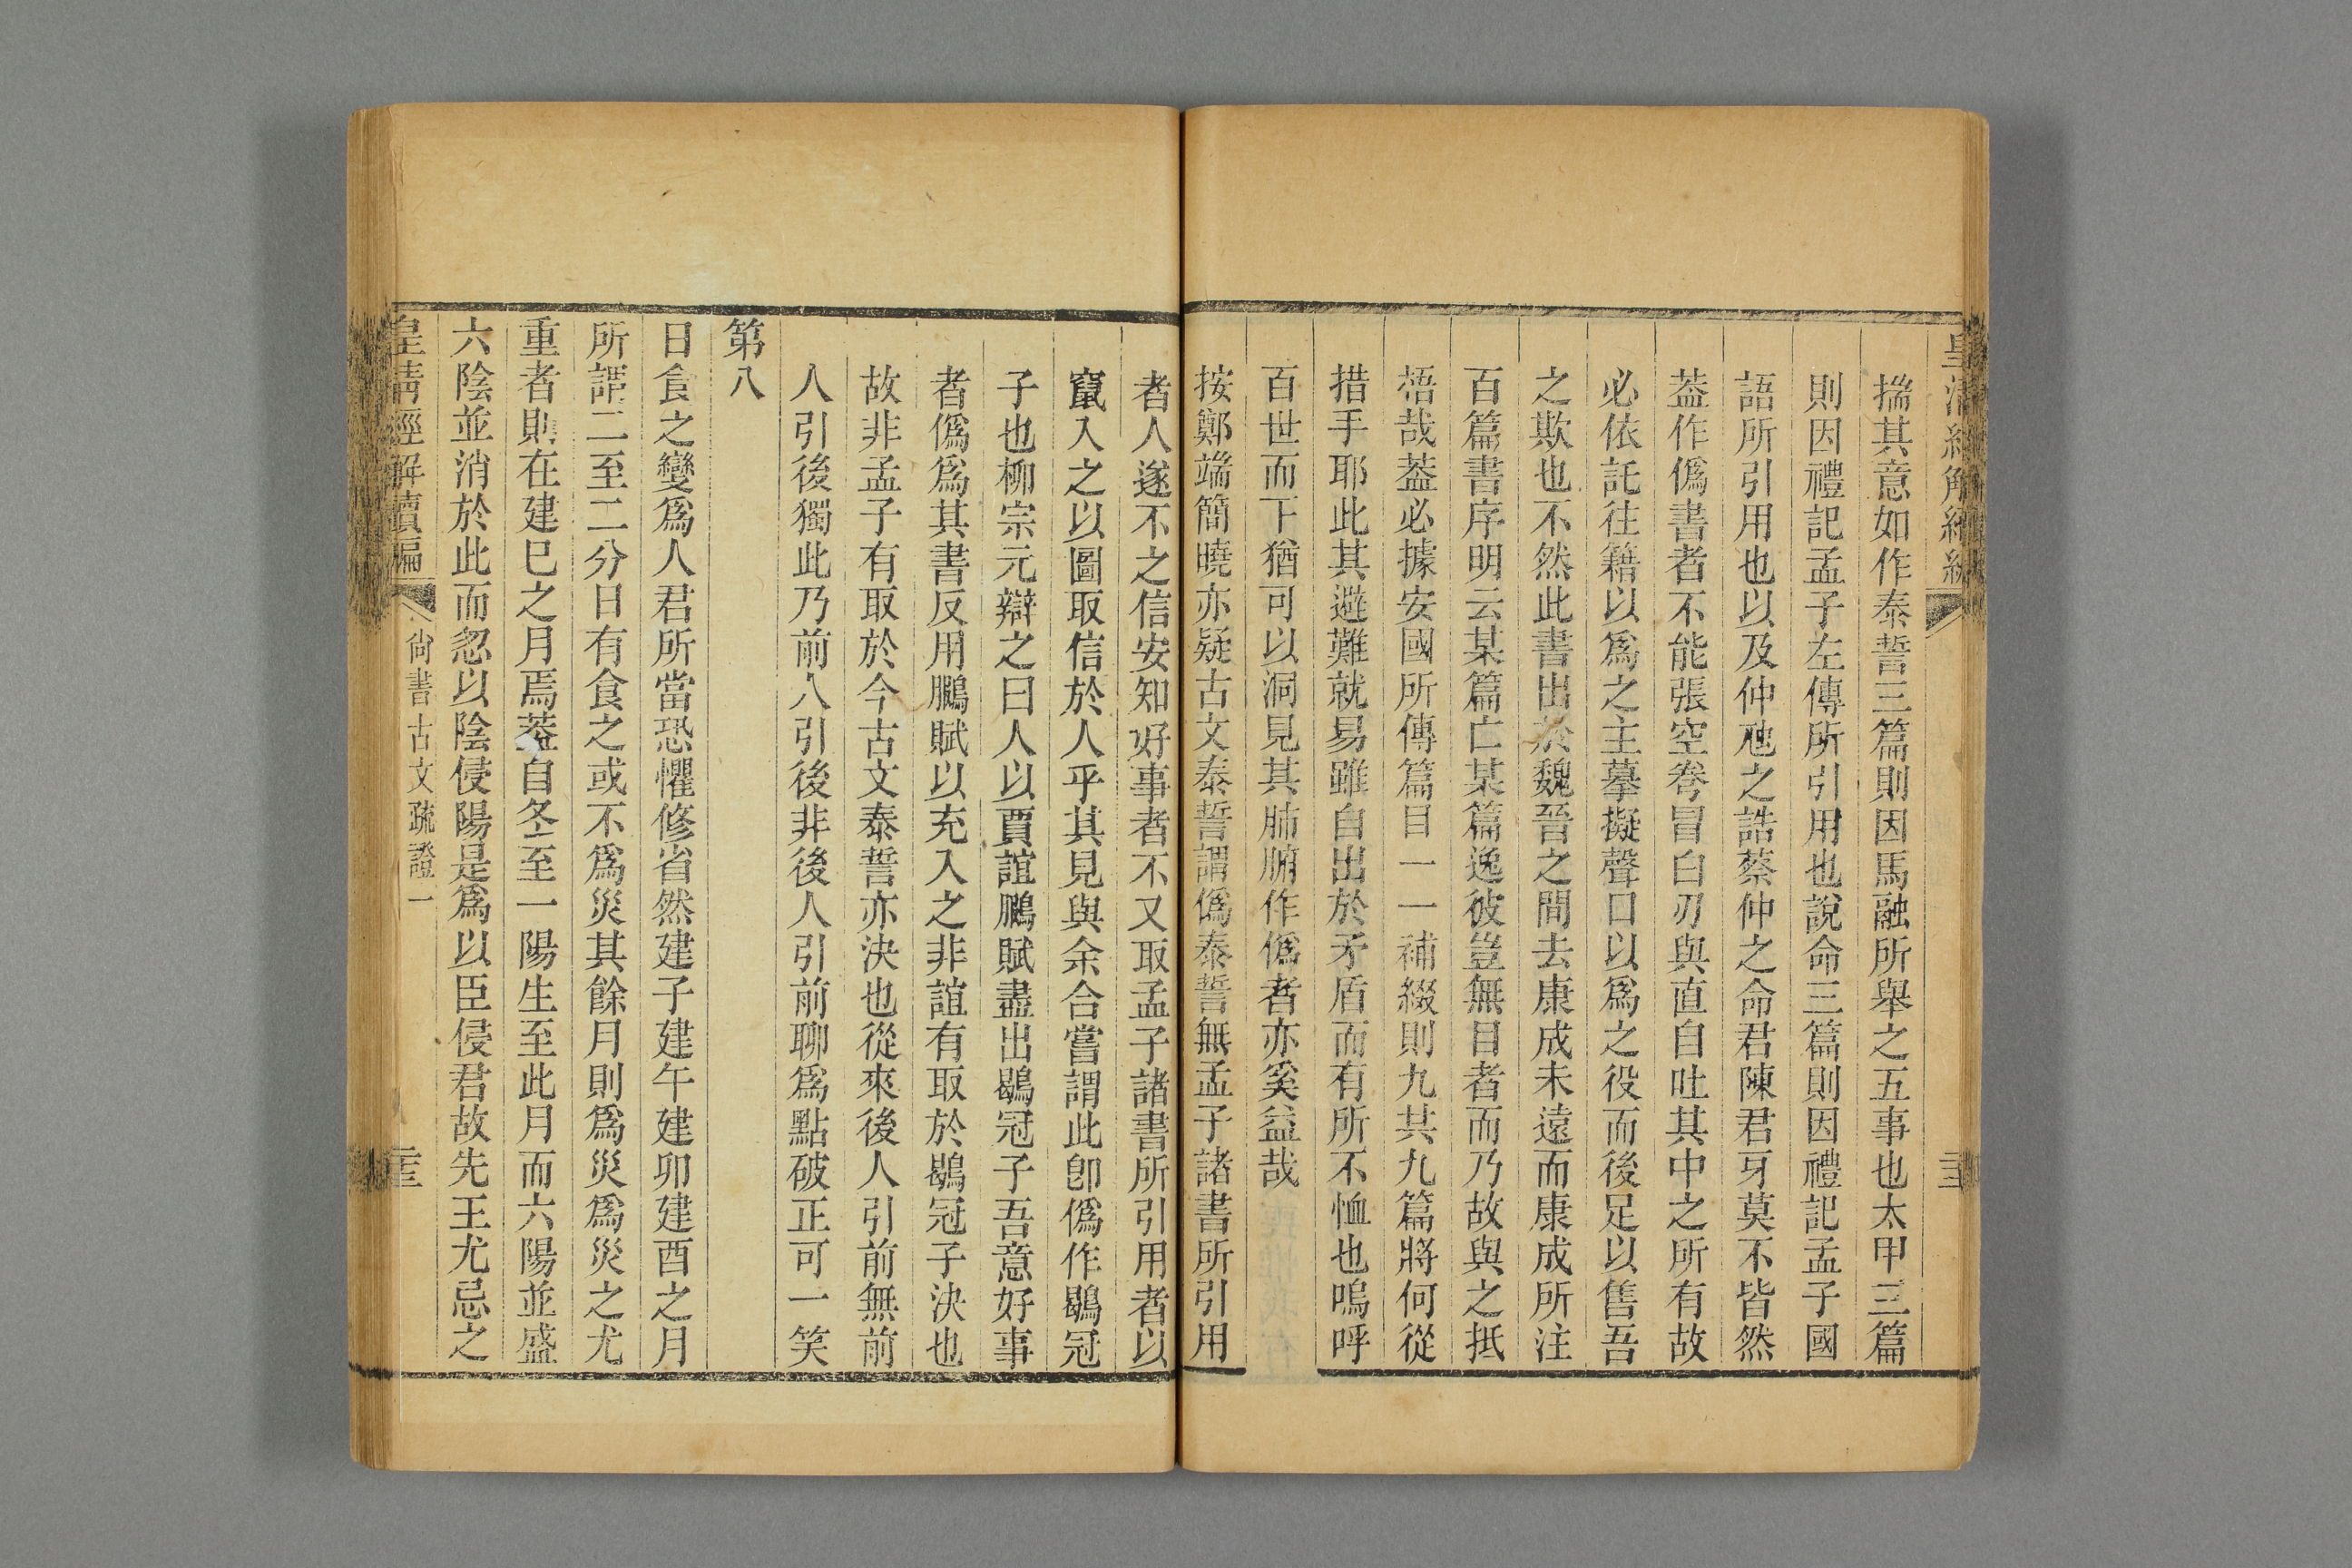 揣其意如作泰誓三篇則因馬融所舉之五事也太甲三篇
則因禮記孟子左傳所引用也說命三篇則因禮記孟子國
語所引用也以及仲虺之誥蔡仲之命君陳君牙莫不皆然
葢作僞書者不能張空弮冒白刃與直自吐其中之所有故
必依託往籍以爲之主摹擬聲口以爲之役而後足以售吾
之欺也不然此書出於魏晉之間去康成未遠而康成所注
百篇書序明云某篇亡某篇逸彼豈無目者而乃故與之抵
梧哉葢必據安國所傳篇目一一補綴則九共九篇將何從
措手耶此其避難就易雖自出於矛盾而有所不恤也嗚呼
百世而下猶可以洞見其肺腑作僞者亦奚益哉
按鄭端簡曉亦疑古文泰誓謂僞泰誓無孟子諸書所引用
者人遂不之信安知好事者不又取孟子諸書所引用者以
竄入之以圖取信於人乎其見與余合嘗謂此卽僞作鶡冠
子也柳宗元辯之曰人以賈誼鵩賦盡出鶡冠子吾意好事
者僞爲其書反用鵩賦以充入之非誼有取於鶡冠子決也
故非孟子有取於今古文泰誓亦決也從來後人引前無前
人引後獨此乃前人引後非後人引前聊爲點破正可一笑
第八
日食之變爲人君所當恐懼修省然建子建午建卯建酉之月
所謂二至二分日有食之或不爲災其餘月則爲災爲災之尤
重者則在建巳之月焉葢自冬至一陽生至此月而六陽並盛
六陰並消於此而忽以陰侵陽是爲以臣侵君故先王尤忌之
皇清經解續編
尚書古文疏證一